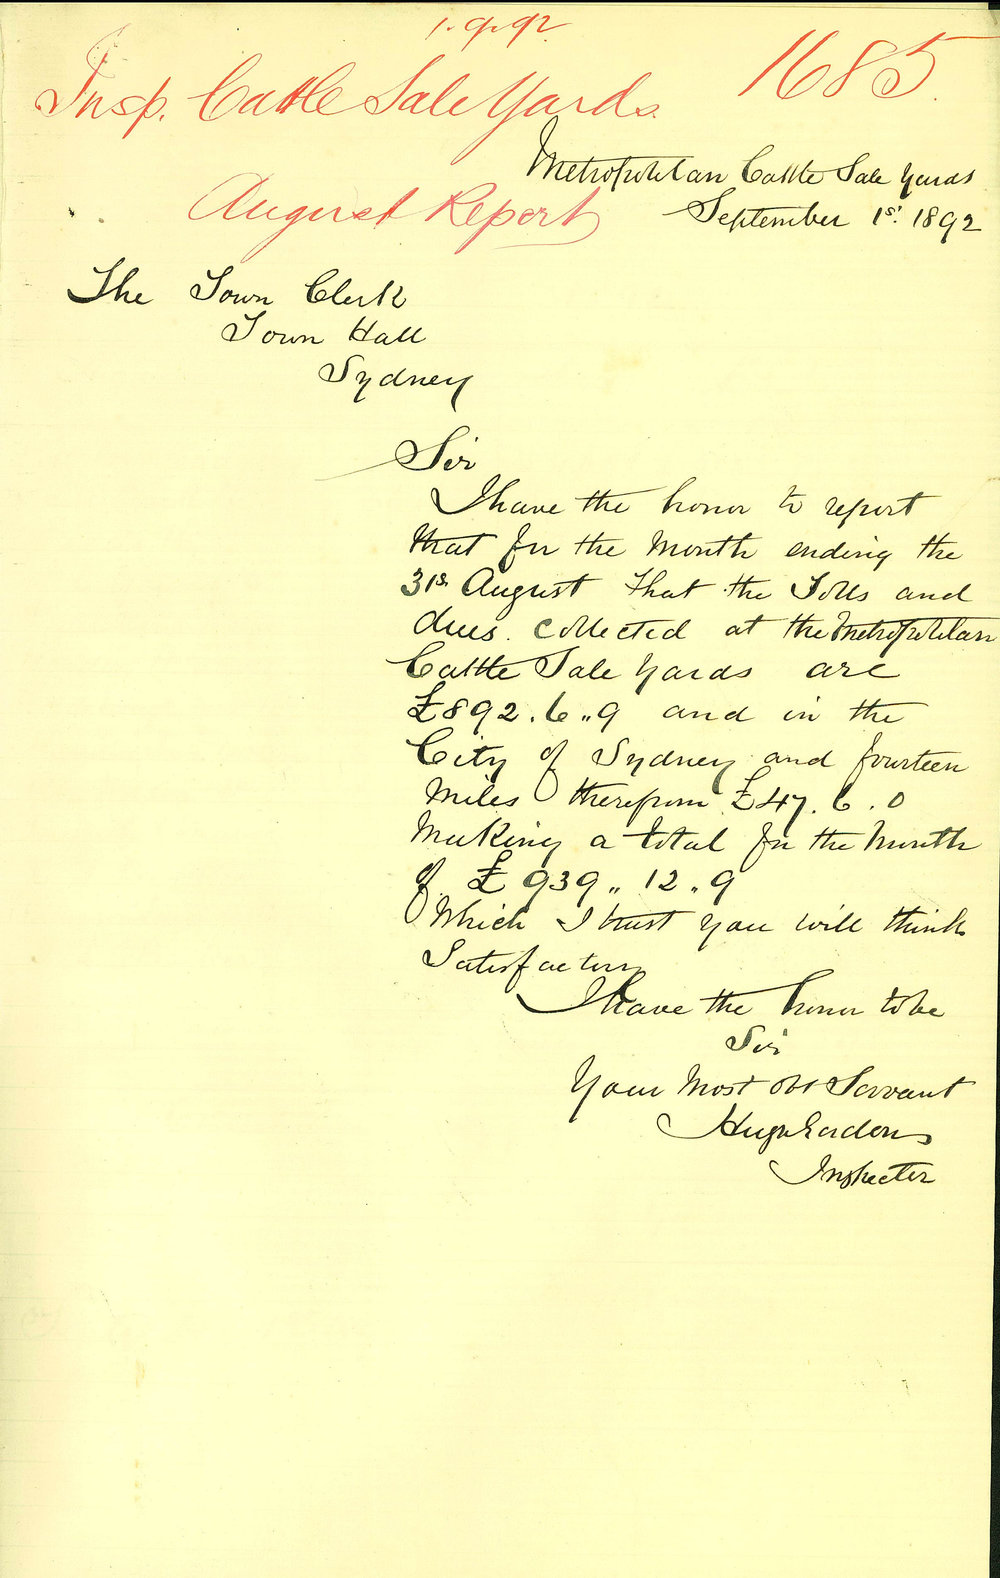 1.9.92
Insp. Cattle Sale Yards. 1685
Metropolitan Cattle Sale Yards
August Report
September 1st. 1892
The Town Clerk
Town Hall
Sydney
Sir
I have the honor to report
that for the Month ending the
31st. August that the Tolls and
dues. collected at the Metropolitan
Cattle Sale Yards are
£892.6..9 and in the
City of Sydney and fourteen
Miles therefrom £47.6.0
Making a total for the Month
of £939..12..9
Which I trust you will think
Satisfactory
I have the honor to be
Sir
Your Most obt Servant
Hugh Gordon
Inspector